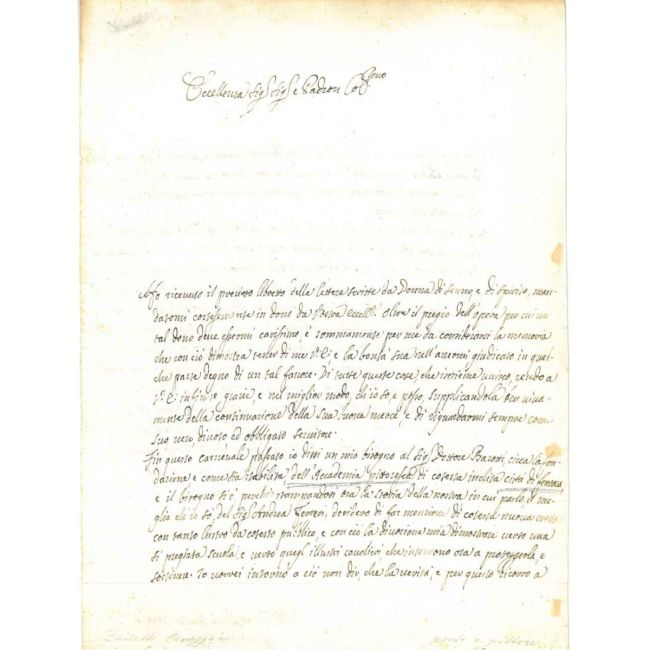 Eccellenza Sig.r Sig.r e Padron Col.mo
Ho ricevuto il prezioso libretto delle lettere scritte da Donna di senno, e di spirito, man-
datomi cortesemente in dono da Vostra Eccell.a. Oltre il pregio dell'opera per cui un
tal dono deve essermi carissimo, è sommamente per me da considerarsi la memoria
che con ciò dimostra tener di me V.E. e la bontà sua nell'avermi giudicato in qual-
che parte degno di un tal favore. Di tutte queste cose, che insieme unisco, rendo a
V.E. infinite grazie, e nel miglior modo, che io so, e posso, supplicandola
mente della continuazione della sua buona mercè, e di riguardarmi sempre com-
suo vero, divoto ed obbligato servitore.
In questo carnevale passato io dissi un mio bisogno al Sig. Dottore circa la fon-
dazione e come stia stabilita dell'Accademia pittoresca di cotesta inclita città di
e il bisogno si è, perchè stampandosi ora la storia della nostra in cui parlo, il me-
glio che io so, del Sig. Andrea desidero di far menzione di cotesta nuova
con tanto lustro da cotesto pubblico, e con ciò la divozione mia dimostrare verso una
sì pregiata scuola, e verso quegl'illustri cavalieri, che intendono ora a proteggerla, e
sostenere. Io vorrei intorno a ciò non dir, che la verità, e per questo ricorro a
poeta e pittore